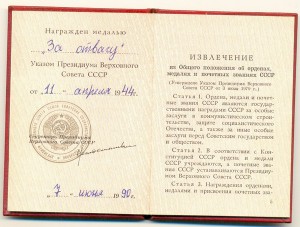 Награжден медалью
„За отвагу"
Указом Президиума Верховного
Совета СССР
от „11" апреля 1944г.
Секретарь Президиума
Верховного Совета СССР
„7" июня 1990г.
ИЗВЛЕЧЕНИЕ
из Общего положения об орденах,
медалях и почетных званиях СССР
(Утверждено Указом Президиума Верховного
Совета СССР от 3 июля 1979 г.)
Статья 1. Ордена, медали и почетные звания СССР являются
государственными наградами СССР за особые
заслуги в коммунистическом строительстве,
защите социалистического
Отечества, а также за иные особые
заслуги перед Советским государством и
обществом.
Статья 2. В соответствии с Конституцией
СССР ордена и медали
СССР учреждаются, а почетные звания
СССР устанавливаются Президиумом
Верховного Совета СССР.
Статья 3. Награждения орденами,
медалями и присвоение почетных